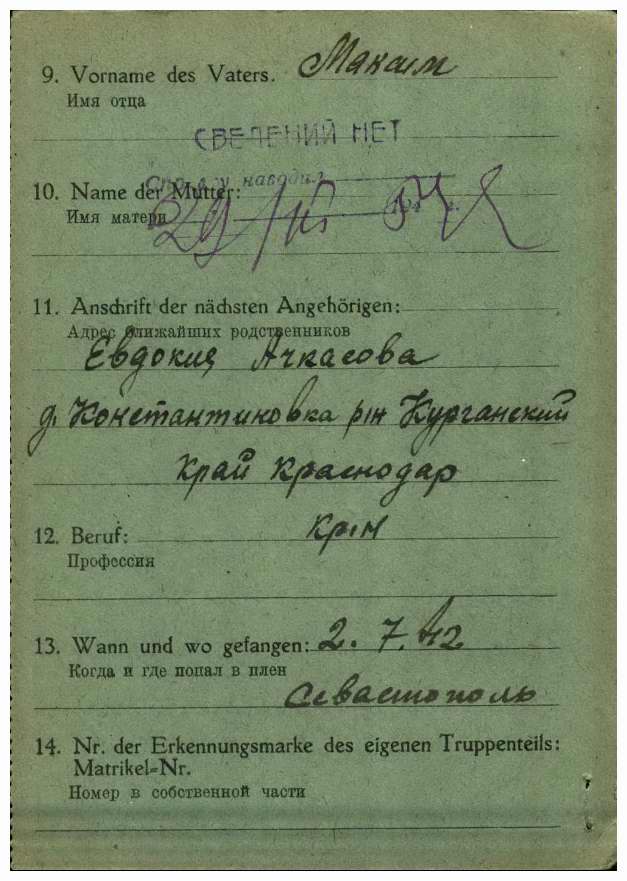 9. Vorname des Vaters. Максим
Имя отца
СВЕДЕНИЙ НЕТ
наводил
10. Name der Mutter:
Имя матери
29/III
11. Anschrift der nächsten Angehörigen:
Адрес ближайших родственников
Евдокия Ачкасова
д. Константиновка р-н Курганский
край Краснодар
12. Beruf: кр-н
Профессия
13. Wann und wo gefangen: 2. 7. 42
Когда и где попал в плен
Севастополь
14. Nr. der Erkennungsmarke des eigenen Truppenteils:
Matrikel=Nr.
Номер в собственной части